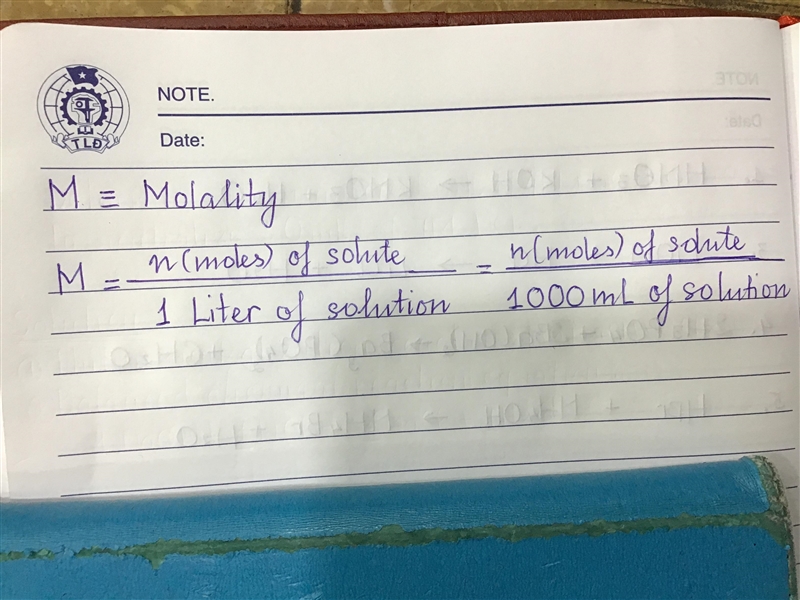 TLĐ
NOTE.
Date:
M ≡ Molality
M = n(moles) of solute / 1 Liter of solution = n(moles) of solute / 1000 mL of solution